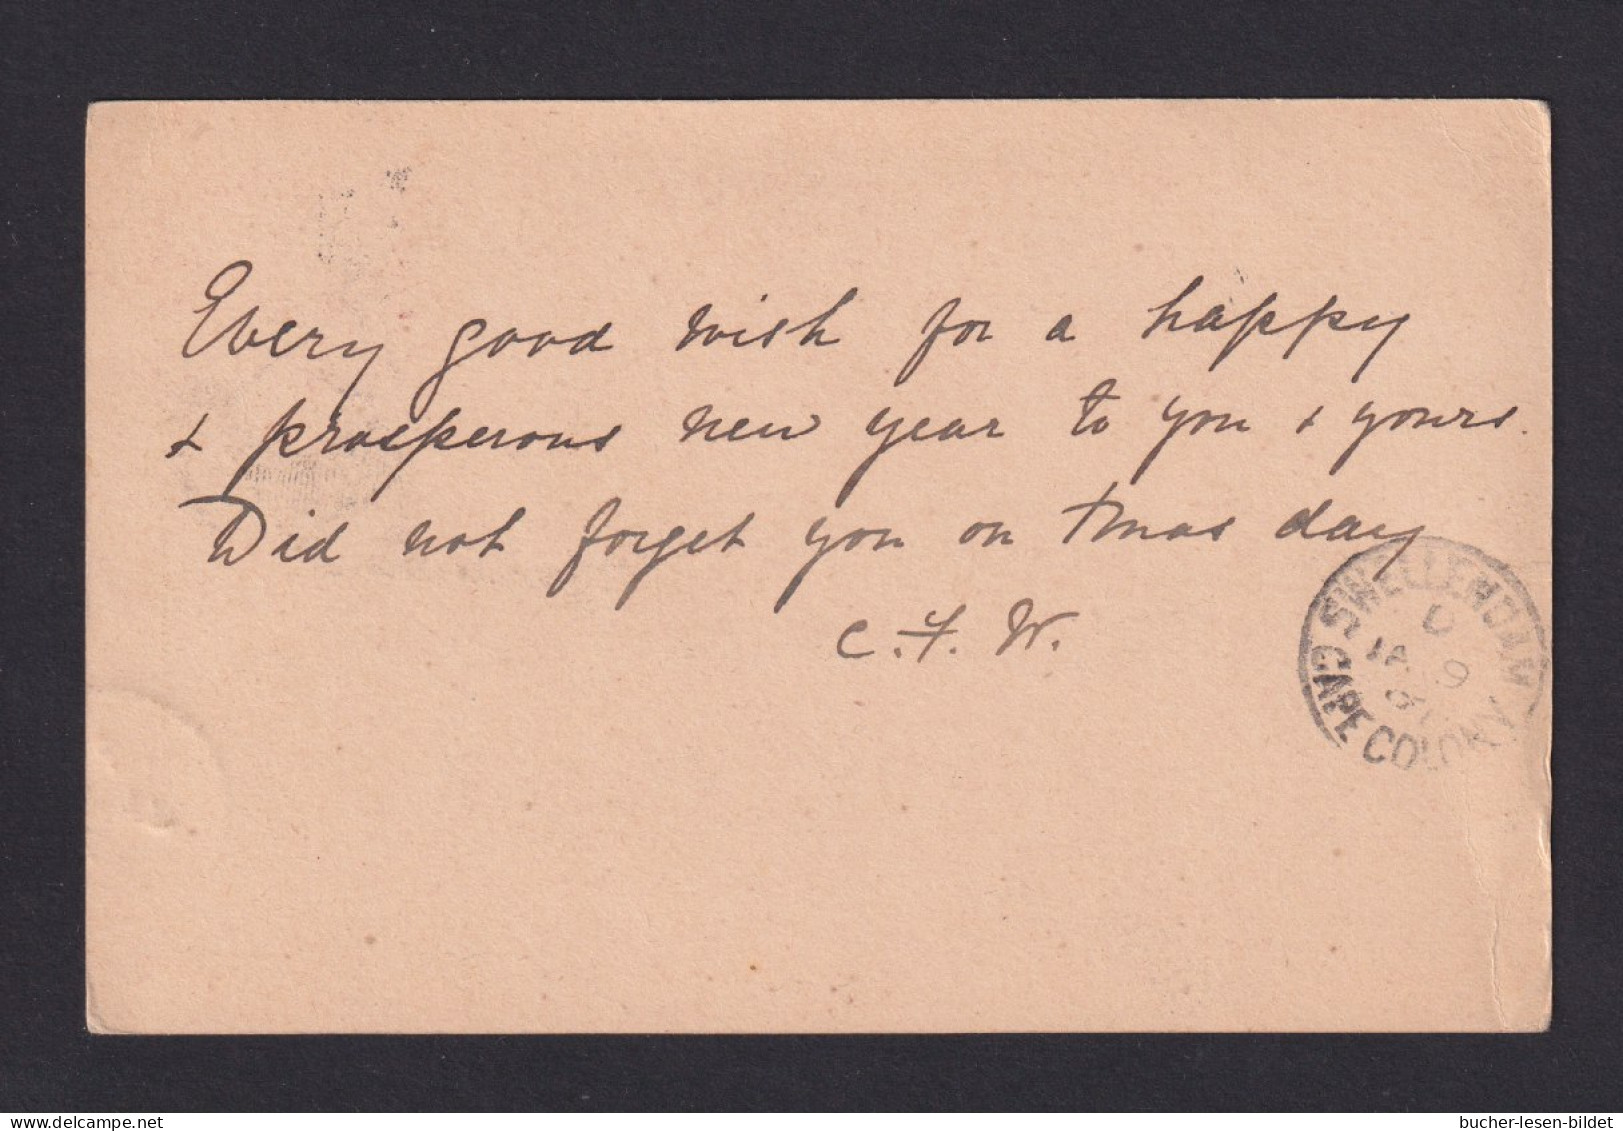 Every good wish for a happy
& prosperous new year to you & yours.
Did not forget you on Xmas day
C. F. W.
SWELLENDAM
JA 9
CAPE COLONY
bucher-lesen-bildet